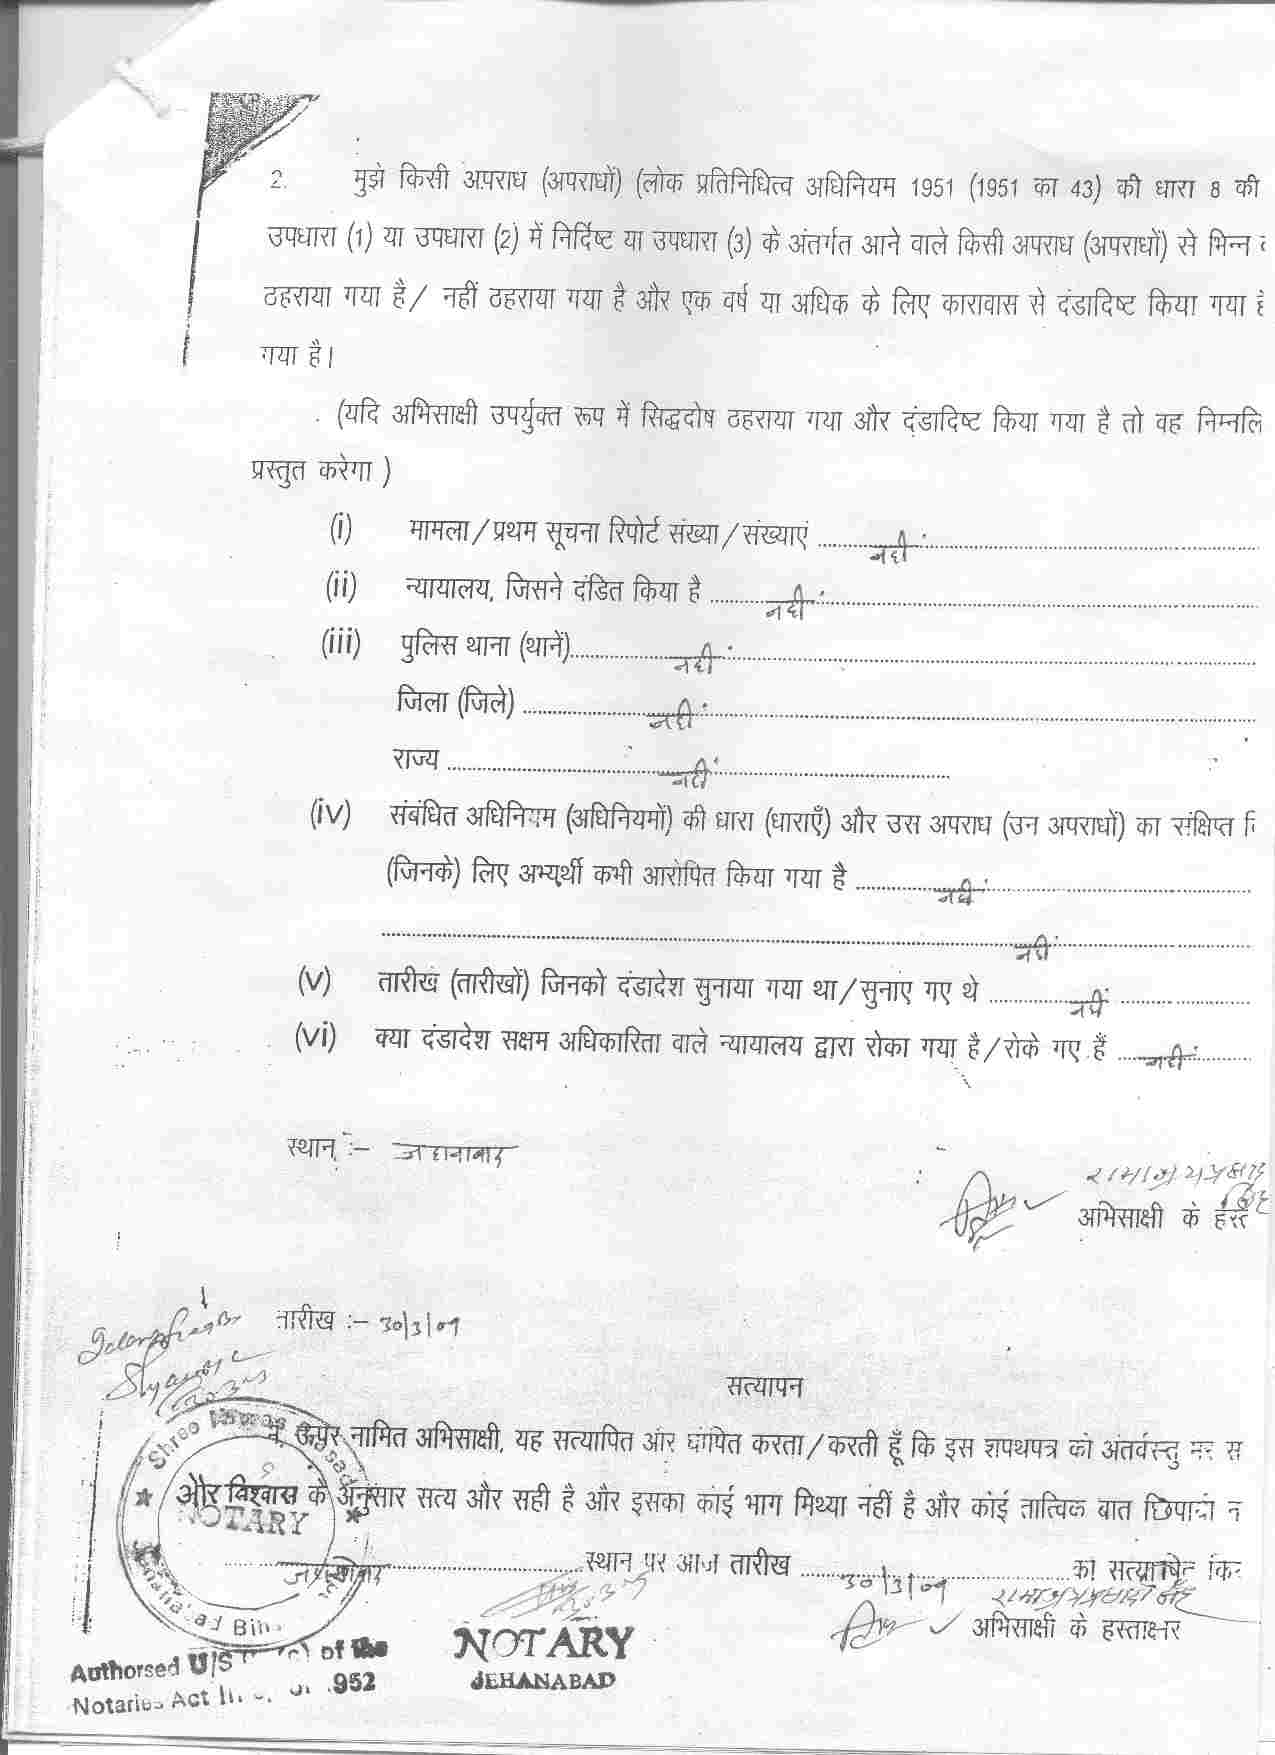 2. मुझे किसी अपराध (अपराधों) (लोक प्रतिनिधित्व अधिनियम 1951 (1951 का 43) की धारा 8 की
उपधारा (1) या उपधारा (2) में निर्दिष्ट या उपधारा (3) के अंतर्गत आने वाले किसी अपराध (अपराधों) से भिन्न
ठहराया गया है/ नहीं ठहराया गया है और एक वर्ष या अधिक के लिए कारावास से दंडादिष्ट किया गया है
गया है।
(यदि अभिसाक्षी उपर्युक्त रूप में सिद्धदोष ठहराया गया और दंडादिष्ट किया गया है तो वह निम्नलि
प्रस्तुत करेगा )
(i) मामला/प्रथम सूचना रिपोर्ट संख्या/संख्याएं ..... नहीं .....
(ii) न्यायालय, जिसने दंडित किया है ..... नहीं .....
(iii) पुलिस थाना (थानें)..... नहीं .....
जिला (जिले) ..... नहीं .....
राज्य ..... नहीं .....
(iv) संबंधित अधिनियम (अधिनियमों) की धारा (धाराएँ) और उस अपराध (उन अपराधों) का संक्षिप्त वि
(जिनके) लिए अभ्यर्थी कभी आरोपित किया गया है ..... नहीं .....
..... नहीं .....
(v) तारीख (तारीखों) जिनको दंडादेश सुनाया गया था/सुनाए गए थे ..... नहीं .....
(vi) क्या दंडादेश सक्षम अधिकारिता वाले न्यायालय द्वारा रोका गया है/रोके गए हैं ..... नहीं .....
स्थान :- जहानाबाद
अभिसाक्षी के हस्त
तारीख :- 30/3/09
सत्यापन
मैं, ऊपर नामित अभिसाक्षी, यह सत्यापित और घोषित करता/करती हूँ कि इस शपथपत्र की अंतर्वस्तु मेरे स
और विश्वास के अनुसार सत्य और सही है और इसका कोई भाग मिथ्या नहीं है और कोई तात्विक बात छिपायी न
..... स्थान पर आज तारीख ..... 30/3/09 ..... को सत्यापित किय
अभिसाक्षी के हस्ताक्षर
NOTARY
Authorsed U/S of the
Notaries Act 952
NOTARY
JEHANABAD